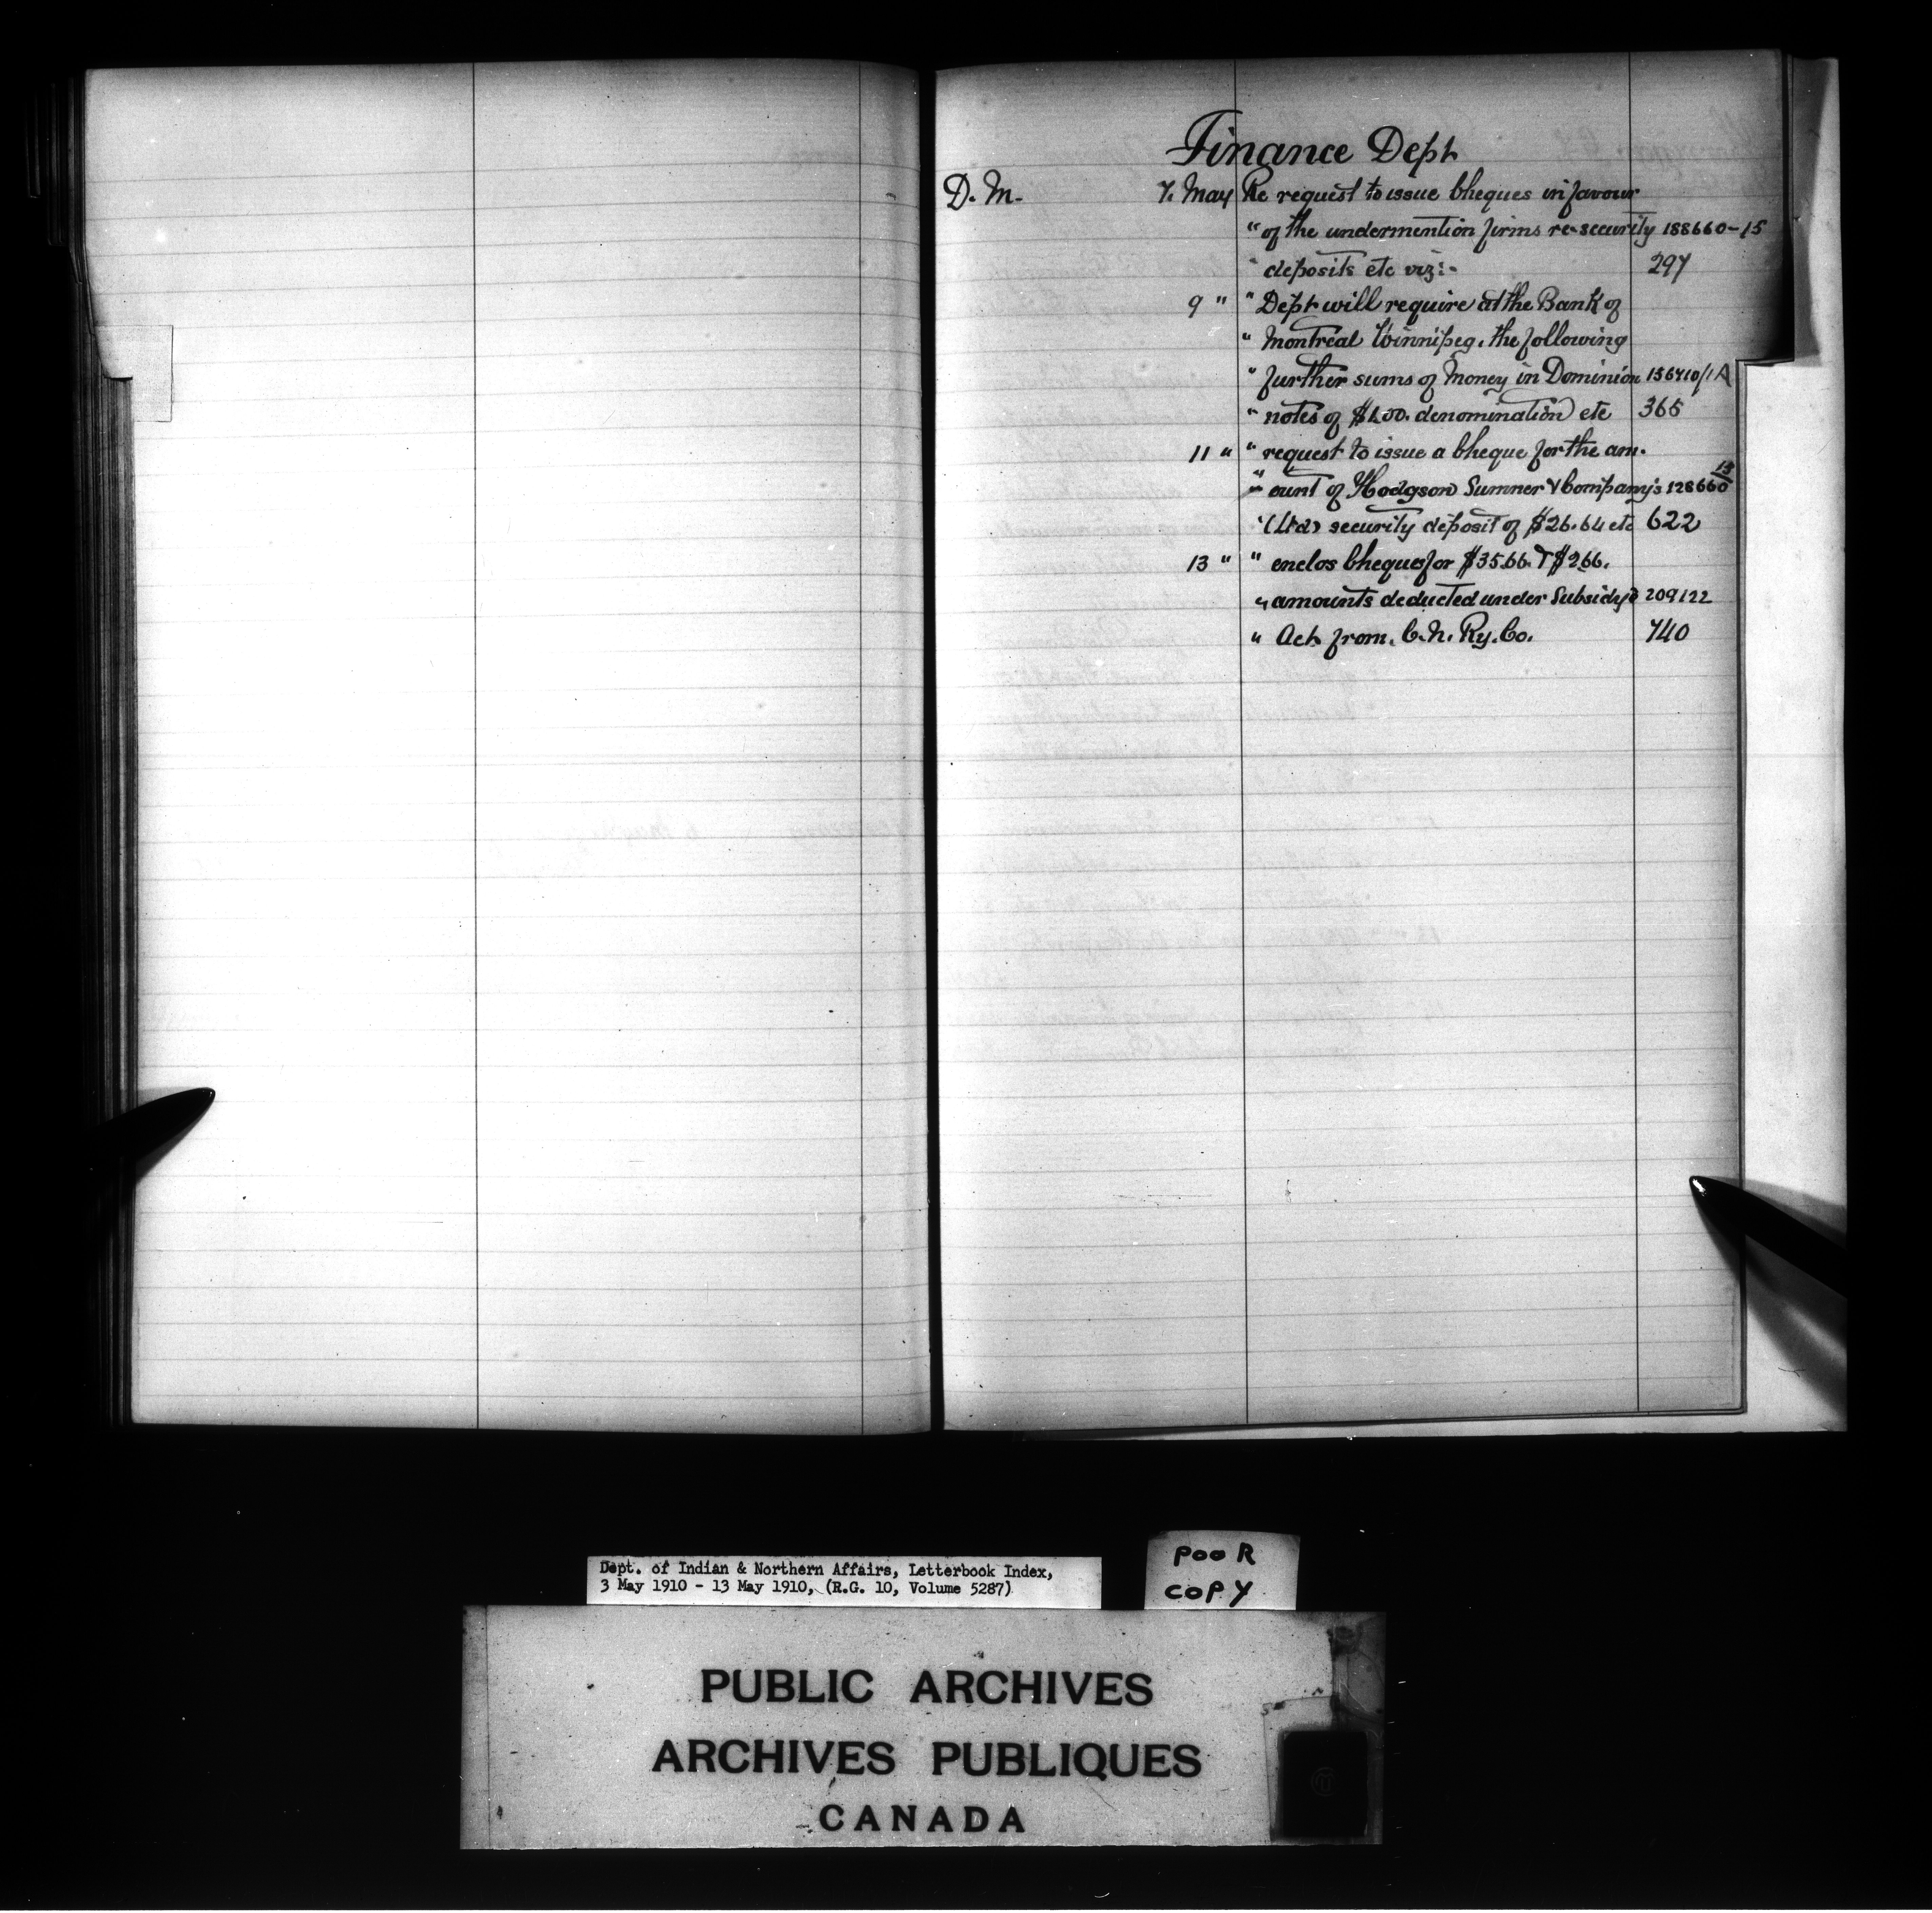 Finance Dept
D. M. 7. May Re request to issue Cheques in favour
" of the undermention firms re-security 188660-15
" deposits etc viz:- 297
9 " " Dept will require at the Bank of
" Montreal Winnipeg, the following
" further sums of Money in Dominion 156710/1A
" notes of $1.00. denomination etc 365
11 " " request to issue a Cheque for the am-
" ount of Hodgson Sumner & Company's 128660 13
" (Ltd) security deposit of $26.64 etc 622
13 " " enclos Cheques for $35.66. & $2.66.
" amounts deducted under Subsidy 209122
" Act from. C. N. Ry. Co. 740
Dept. of Indian & Northern Affairs, Letterbook Index,
3 May 1910 - 13 May 1910, (R.G. 10, Volume 5287)
POOR
COPY
PUBLIC ARCHIVES
ARCHIVES PUBLIQUES
CANADA